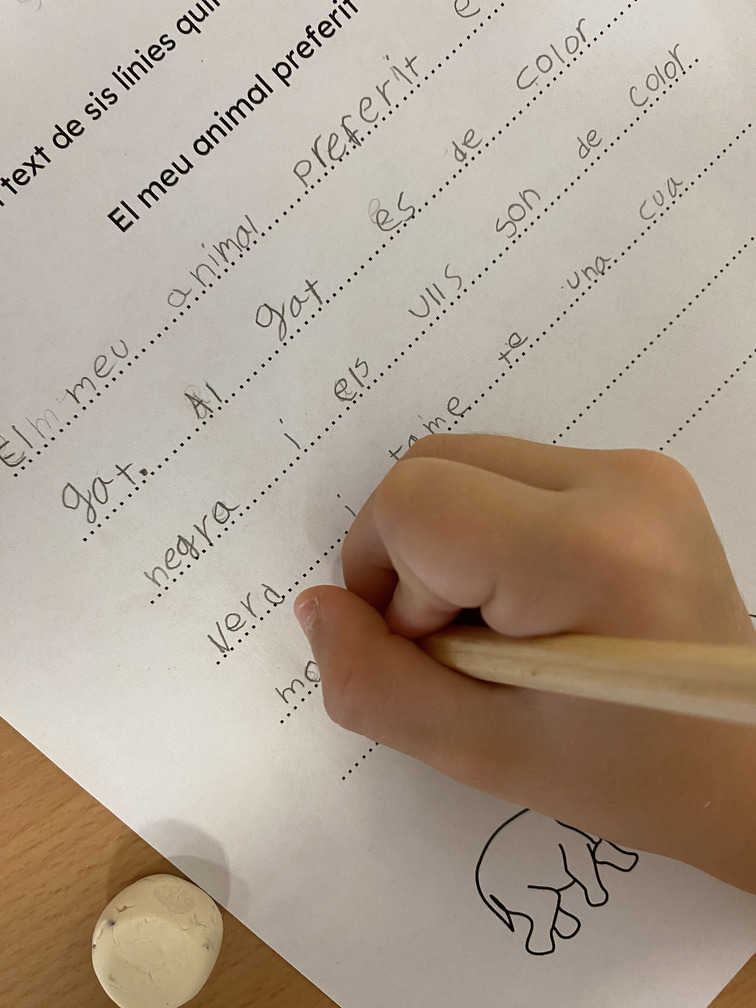 text de sis línies
El meu animal preferit
El meu animal preferit
gat. Al gat és de color
negra i els ulls son de color
Verd i tame te una cua